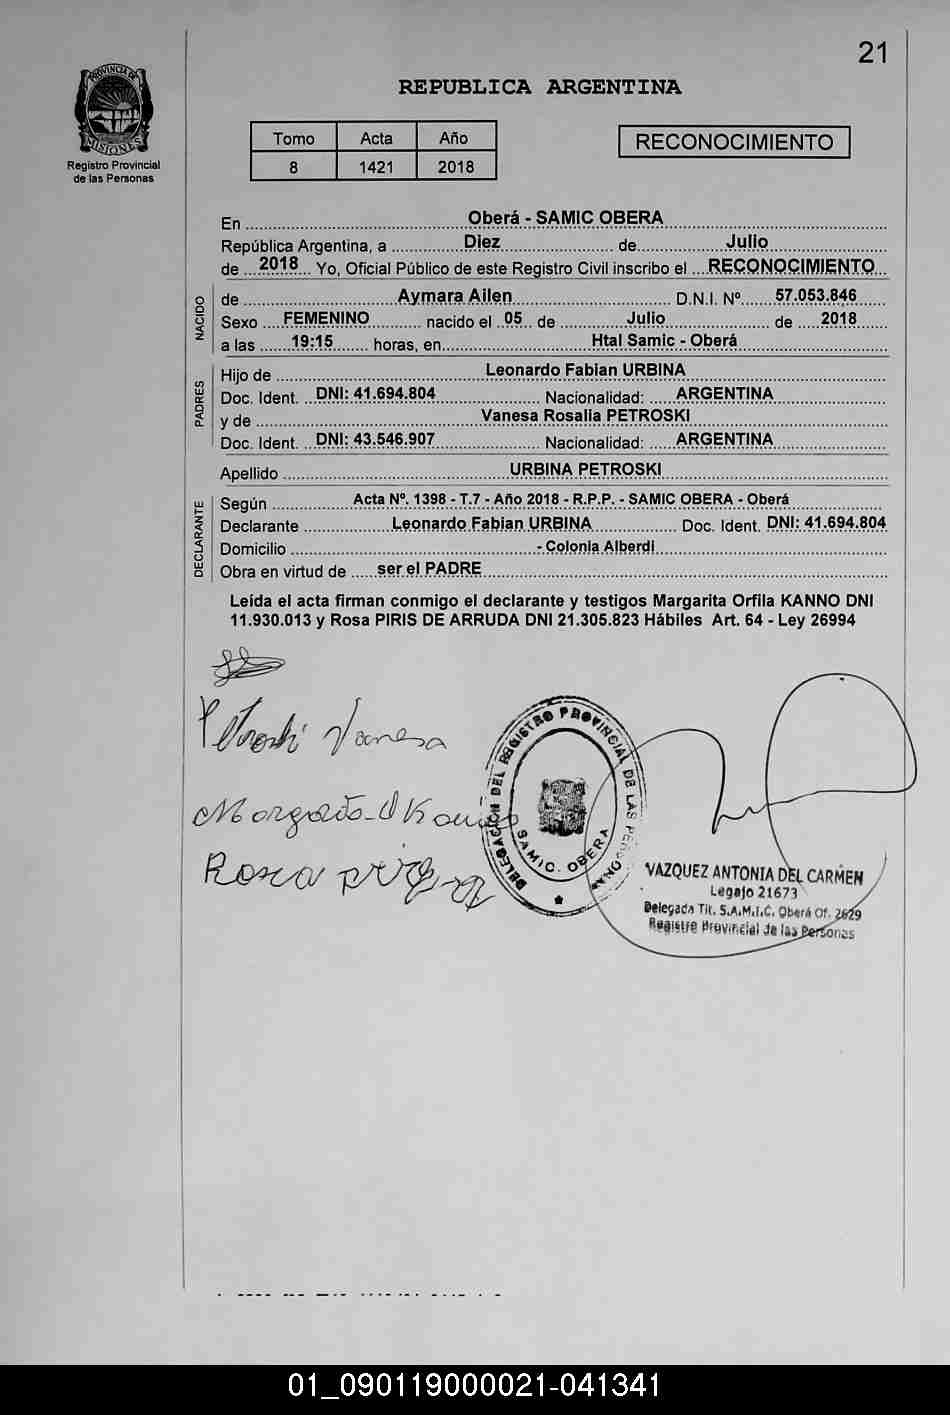 21
PROVINCIA DE
MISIONES
Registro Provincial
de las Personas
REPUBLICA ARGENTINA
Tomo Acta Año
8 1421 2018
RECONOCIMIENTO
En Oberá - SAMIC OBERA
República Argentina, a Diez de Julio
de 2018 Yo, Oficial Público de este Registro Civil inscribo el RECONOCIMIENTO
NACIDO
de Aymara Ailen D.N.I. Nº 57.053.846
Sexo FEMENINO nacido el 05 de Julio de 2018
a las 19:15 horas, en Htal Samic - Oberá
PADRES
Hijo de Leonardo Fabian URBINA
Doc. Ident. DNI: 41.694.804 Nacionalidad: ARGENTINA
y de Vanesa Rosalia PETROSKI
Doc. Ident. DNI: 43.546.907 Nacionalidad: ARGENTINA
Apellido URBINA PETROSKI
DECLARANTE
Según Acta Nº. 1398 - T.7 - Año 2018 - R.P.P. - SAMIC OBERA - Oberá
Declarante Leonardo Fabian URBINA Doc. Ident. DNI: 41.694.804
Domicilio - Colonia Alberdi
Obra en virtud de ser el PADRE
Leída el acta firman conmigo el declarante y testigos Margarita Orfila KANNO DNI
11.930.013 y Rosa PIRIS DE ARRUDA DNI 21.305.823 Hábiles Art. 64 - Ley 26994
Petroski Vanesa
Margarita O Kanno
Rosa
DELEGACIÓN DEL REGISTRO PROVINCIAL DE LAS PERSONAS
SAMIC. OBERA
VAZQUEZ ANTONIA DEL CARMEN
Legajo 21673
Delegada Tit. S.A.M.I.C. Oberá Of. 2629
Registro Provincial de las Personas
01_090119000021-041341